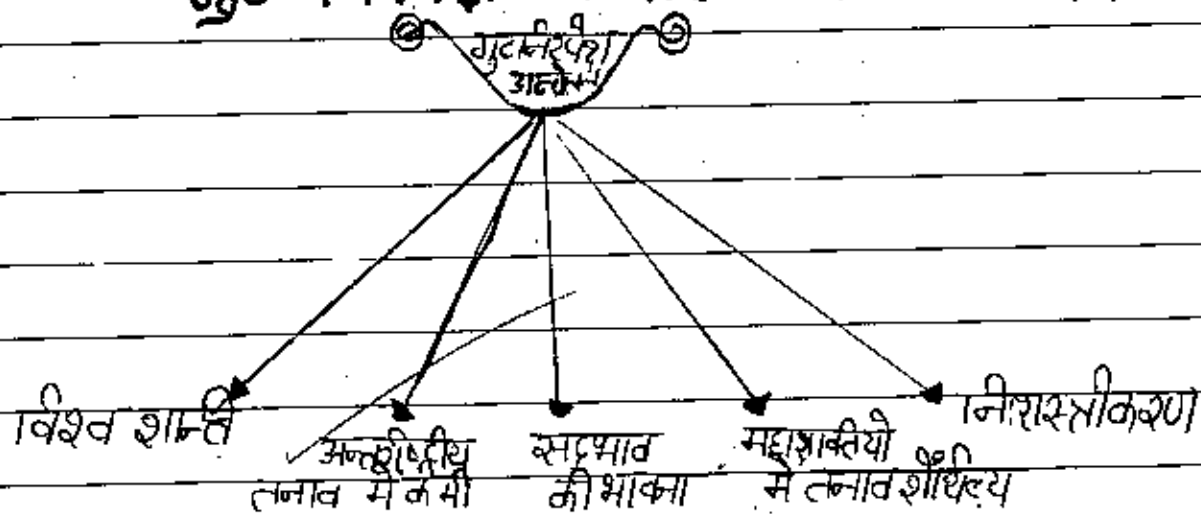 गुटनिरपेक्ष
आन्दोलन
विश्व शान्ति
अन्तर्राष्ट्रीय
तनाव मे कमी
सद्भाव
की भावना
महाशक्तियो
मे तनाव शैथिल्य
निःशस्त्रीकरण